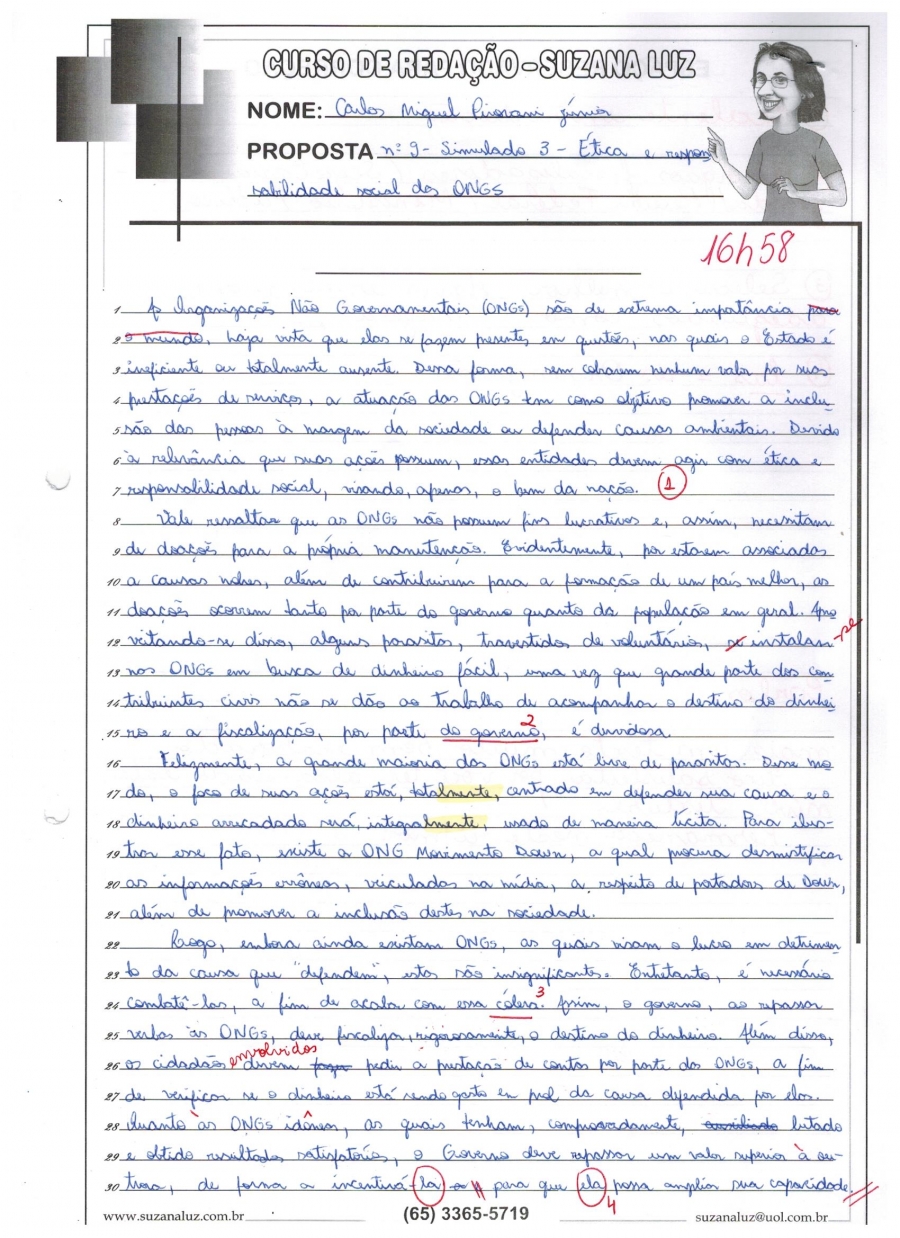 CURSO DE REDAÇÃO - SUZANA LUZ
NOME: Carlos Miguel Piovani Júnior
PROPOSTA nº 9 - Simulado 3 - Ética e respon
sabilidade social das ONGs
16h58
1 As Organizações Não Governamentais (ONGs) são de extrema importância para
2 o mundo, haja vista que elas se fazem presentes em questões, nas quais o Estado é
3 ineficiente ou totalmente ausente. Dessa forma, sem cobrarem nenhum valor por suas
4 prestações de serviços, a atuação das ONGs tem como objetivo promover a inclu
5 são das pessoas à margem da sociedade ou defender causas ambientais. Devido
6 à relevância que suas ações possuem, essas entidades devem agir com ética e
7 responsabilidade social, visando, apenas, o bem da nação. 1
8 Vale ressaltar que as ONGs não possuem fins lucrativos e, assim, necessitam
9 de doações para a própria manutenção. Evidentemente, por estarem associadas
10 a causas nobres, além de contribuirem para a formação de um país melhor, as
11 doações ocorrem tanto por parte do governo quanto da população em geral. Apro
12 veitando-se disso, alguns parasitas, travestidos de voluntários, se instalam -se
13 nas ONGs em busca de dinheiro fácil, uma vez que grande parte dos con
14 tribuintes civis não se dão ao trabalho de acompanhar o destino do dinhei
15 ro e a fiscalização, por parte do governo, 2 é duvidosa.
16 Felizmente, a grande maioria das ONGs está livre de parasitas. Desse mo
17 do, o foco de suas ações está, totalmente, centrado em defender sua causa e o
18 dinheiro arrecadado será, integralmente, usado de maneira lícita. Para ilus
19 trar esse fato, existe a ONG Movimento Down, a qual procura desmistificar
20 as informações errôneas, veiculadas na mídia, a respeito de portadores de Down,
21 além de promover a inclusão destes na sociedade.
22 Logo, embora ainda existam ONGs, as quais visam o lucro em detrimen
23 to da causa que "defendem", estas são insignificantes. Entretanto, é necessário
24 combatê-las, a fim de acabar com essa cólera. 3 Assim, o governo, ao repassar
25 verbas às ONGs, deve fiscalizar, rigorosamente, o destino do dinheiro. Além disso,
26 os cidadãos envolvidos devem pedir a prestação de contas por parte das ONGs, a fim
27 de verificar se o dinheiro está sendo gasto em prol da causa defendida por elas.
28 Quanto às ONGs idôneas, as quais tenham, comprovadamente, lutado
29 e obtido resultados satisfatórios, o Governo deve repassar um valor superior à ou-
30 tras, de forma a incentivá-la para que ela possa ampliar sua capacidade.
4
www.suzanaluz.com.br
(65) 3365-5719
suzanaluz@uol.com.br